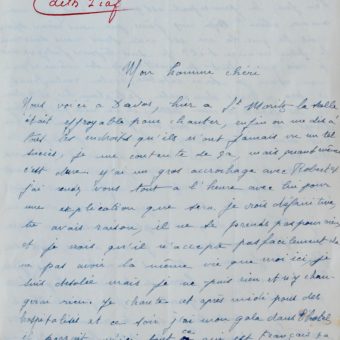 Edith Piaf
Mon homme chéri
Nous voici à Davos, hier à St Moritz la salle
était effroyable pour chanter, enfin on me dis à
tous les endroits qu'ils n'ont jamais vu un tel
succès, je me contente de ça, mais quand même
c'est dure. J'ai un gros accrochage avec Robert et
j'ai avec tout à l'heure avec lui pour
une explication que sera, je crois définitive
tu avais raison, il ne se prends pas pour rien
et je vois qu'il n'accepte pas facilement de
ne pas avoir la même vie que moi ici, je
suis désolée mais je ne puis rien et n'y chan-
gerai rien. Je chante cet après midi pour des
hospitalisés et ce soir j'ai mon gala dans l'hotel
il parait ici tout ce qui est français